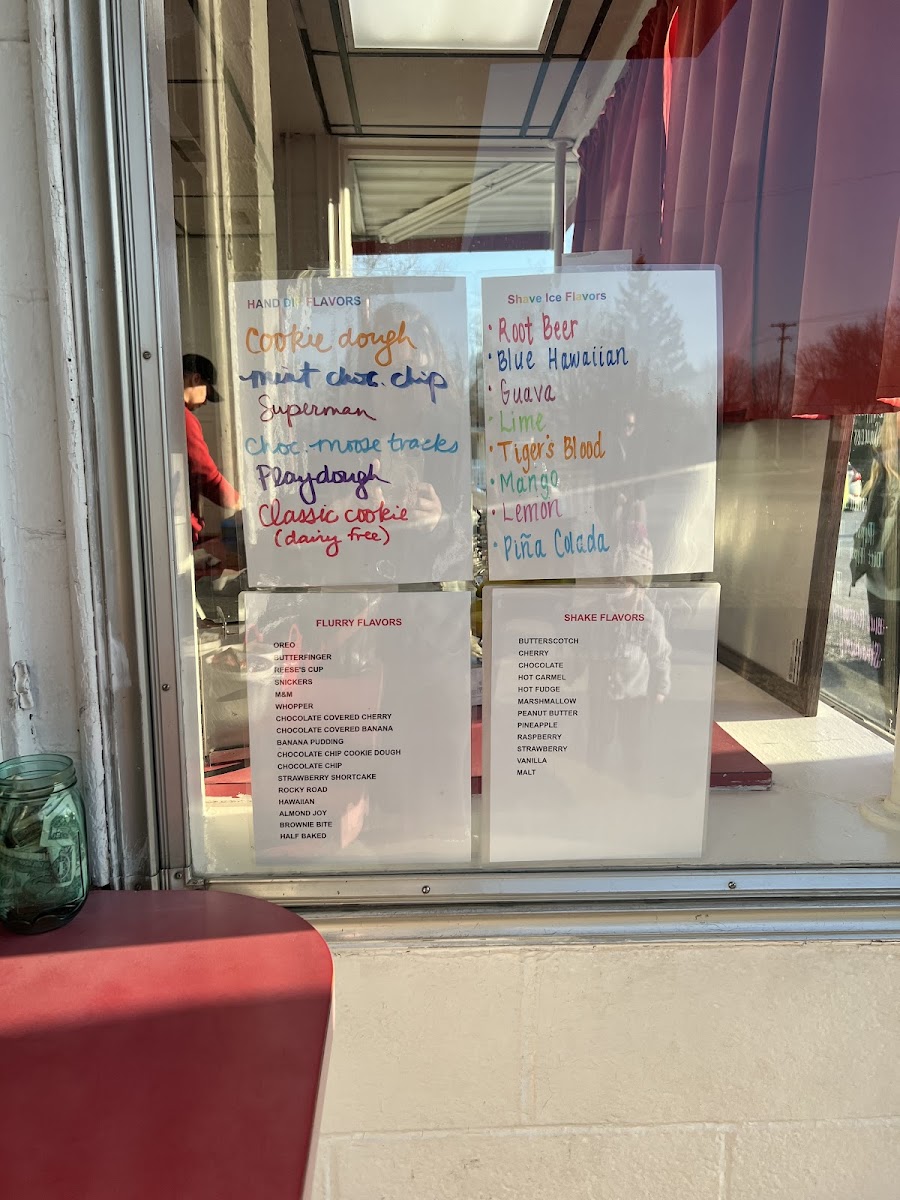 HAND DIP FLAVORS
Cookie dough
mint choc. chip
Superman
choc. moose tracks
Playdough
Classic cookie
(dairy free)
Shave Ice Flavors
• Root Beer
• Blue Hawaiian
• Guava
• Lime
• Tiger's Blood
• Mango
• Lemon
• Piña Colada
FLURRY FLAVORS
OREO
BUTTERFINGER
REESE'S CUP
SNICKERS
M&M
WHOPPER
CHOCOLATE COVERED CHERRY
CHOCOLATE COVERED BANANA
BANANA PUDDING
CHOCOLATE CHIP COOKIE DOUGH
CHOCOLATE CHIP
STRAWBERRY SHORTCAKE
ROCKY ROAD
HAWAIIAN
ALMOND JOY
BROWNIE BITE
HALF BAKED
SHAKE FLAVORS
BUTTERSCOTCH
CHERRY
CHOCOLATE
HOT CARMEL
HOT FUDGE
MARSHMALLOW
PEANUT BUTTER
PINEAPPLE
RASPBERRY
STRAWBERRY
VANILLA
MALT